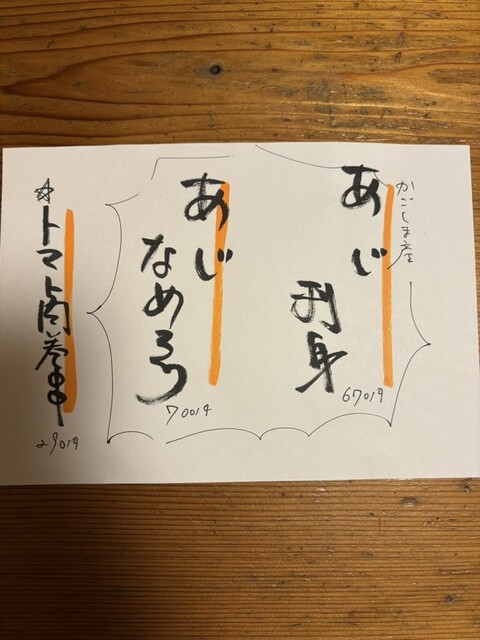 かごしま産
あじ
刺身
670円
あじ
なめろう
700円
☆トマト肉巻串
290円